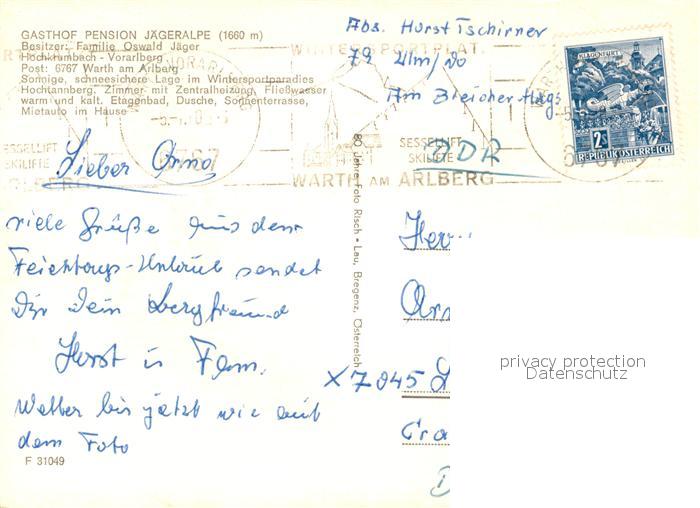 GASTHOF PENSION JÄGERALPE (1660 m)
Besitzer: Familie Oswald Jäger
Hochkrumbach - Vorarlberg
Post: 6767 Warth am Arlberg
Sonnige, schneesichere Lage im Wintersportparadies
Hochtannberg. Zimmer mit Zentralheizung, Fließwasser
warm und kalt. Etagenbad, Dusche, Sonnenterrasse,
Mietauto im Hause
Abs. Horst Tschirner
79 Ulm/Do
Am Bleicher Hag
DDR
WINTERSPORTPLATZ
SESSELLIFT
SKILIFTE
WARTH AM ARLBERG
SESSELLIFT
SKILIFTE
6767
KLAGENFURT
2S
REPUBLIK ÖSTERREICH
Lieber Arno
viele Grüße aus dem
Feiertags-Urlaub sendet
Dir Dein Bergfreund
Horst u Fam.
Wetter bis jetzt wie auf
dem Foto
F 31049
80 Jahre Foto Risch - Lau, Bregenz, Österreich
Herr
Arn
X 7045 L
D
privacy protection
Datenschutz